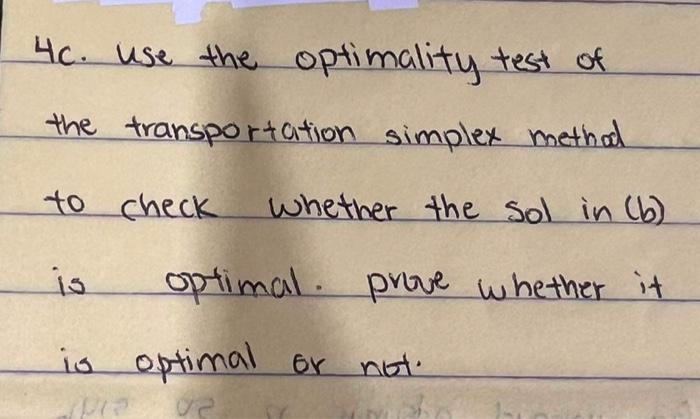 4c. use the optimality test of
the transportation simplex method
to check whether the sol in (b)
is optimal. prove whether it
is optimal or not.